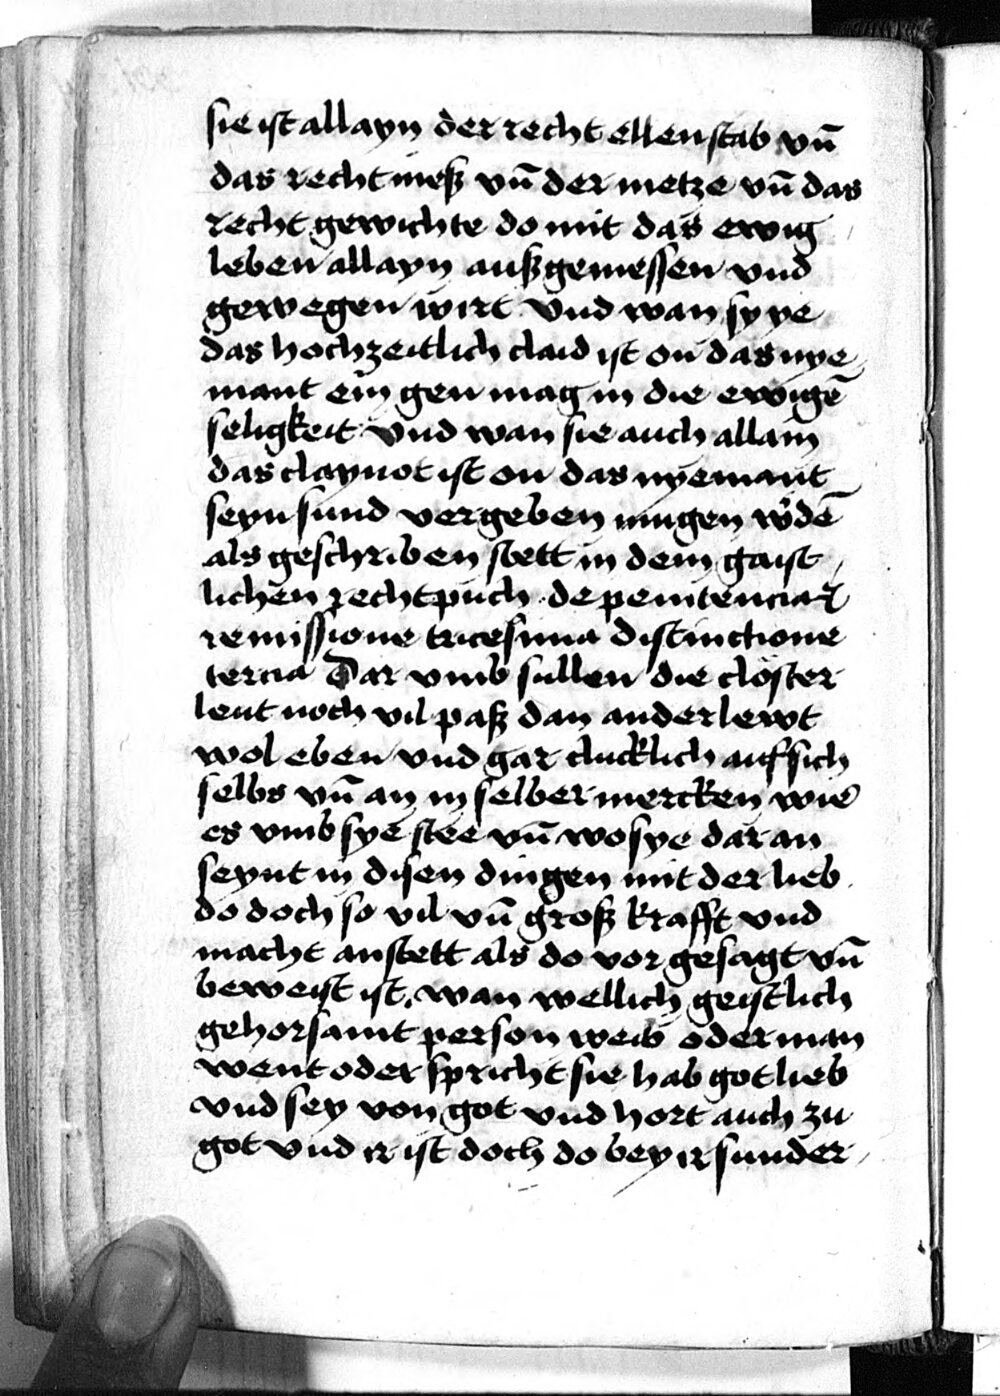 sie ist allayn der recht ellenstab vn̄
das recht meß vn̄ der metze vn̄ das
recht gewichte do mit das ewig
leben allayn außgemessen vnd
gewegen wirt Vnd wan sy ye
das hochzeitlich claid ist on das nye
mant ein gen mag in die ewigē
seligkeit Vnd wan sie auch allain
das claynot ist on das nyemant
seyn sund vergeben mugen w'dē
als geschriben stett in dem gaist
lichen recht puch de penitencia ⁊
remissione tricesima distinctione
tercia Dar vmb sullen die closter
leut noch vil paß dan ander lewt
wol eben vnd gar clucklich auf sich
selbs vn̄ an in selber mercken wie
es vmb sye stee vn̄ wo sye dar an
seynt in disen dingen mit der lieb
do doch so vil vn̄ groß krafft vnd
macht anstett als do vor gesagt vn̄
beweist ist. wan wellich geistlich
gehorsamt person weib oder man
went oder spricht sie hab got lieb
vnd sey von got vnd hort auch zu
got vnd ir ist doch do bey ir sunder